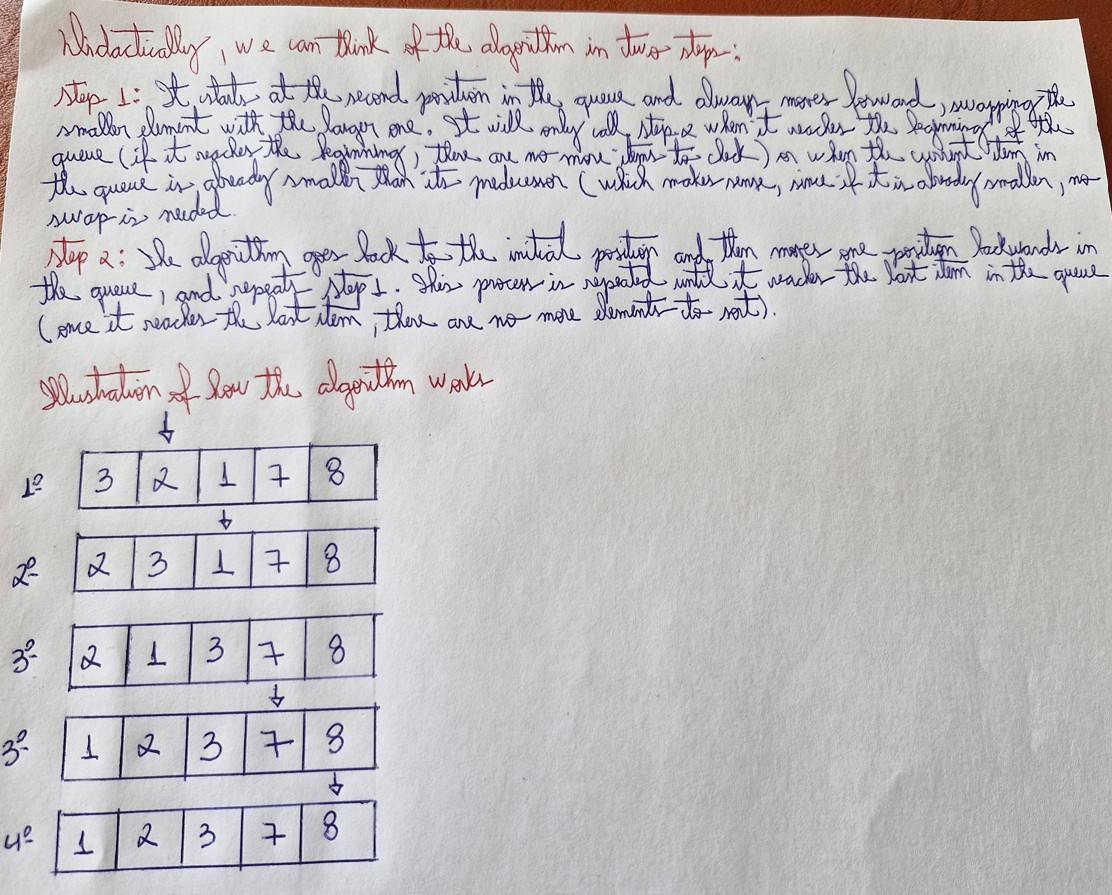 Didactically, we can think of the algorithm in two steps:
Step 1: It starts at the second position in the queue and always moves forward, swapping the
smaller element with the larger one. It will only call step 2 when it reaches the beginning of the
queue (if it reaches the beginning, there are no more items to check) or when the current item in
the queue is already smaller than its predecessor (which makes sense, since if it is already smaller, no
swap is needed.
Step 2: The algorithm goes back to the initial position and then moves one position backwards in
the queue, and repeats step 1. This process is repeated until it reaches the last item in the queue
(once it reaches the last item, there are no more elements to sort).
Illustration of how the algorithm works
1º 3 2 1 7 8
2º 2 3 1 7 8
3º 2 1 3 7 8
3º 1 2 3 7 8
4º 1 2 3 7 8